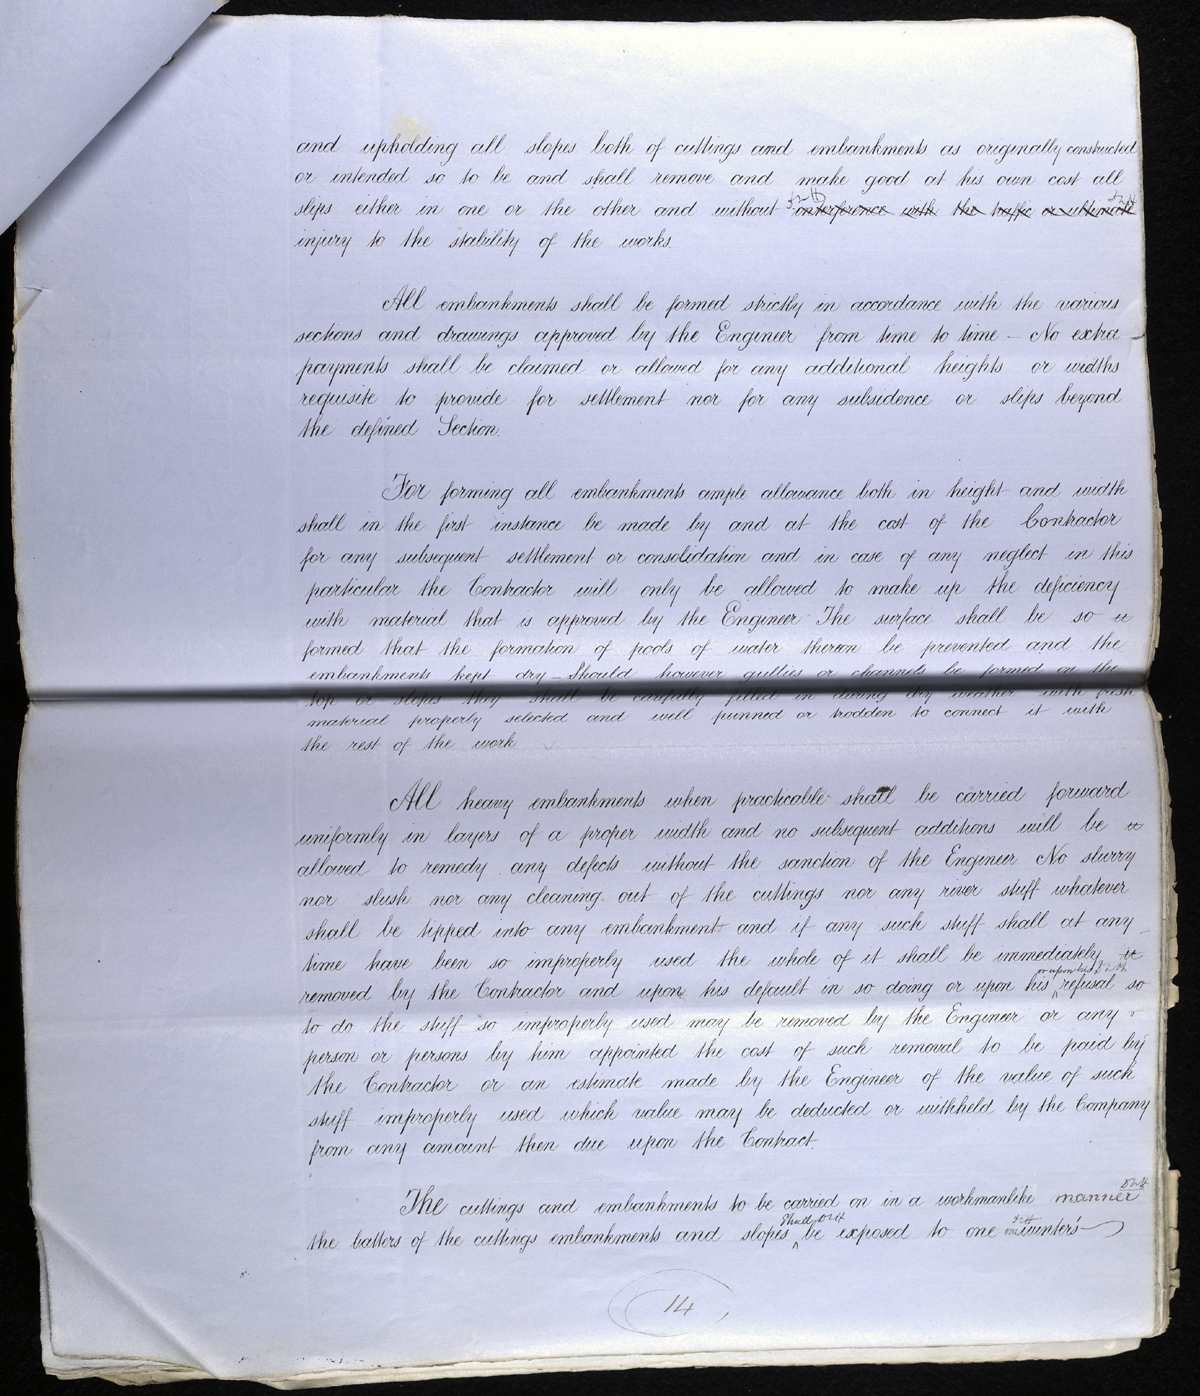 and upholding all slopes both of cuttings and embankments as originally constructed
or intended so to be and shall remove and make good at his own cost all
slips either in one or the other and without interference with the traffic or ultimate
injury to the stability of the works.
All embankments shall be formed strictly in accordance with the various
sections and drawings approved by the Engineer from time to time — No extra
payments shall be claimed or allowed for any additional heights or widths
requisite to provide for settlement nor for any subsidence or slips beyond
the defined Section.
For forming all embankments ample allowance both in height and width
shall in the first instance be made by and at the cost of the Contractor
for any subsequent settlement or consolidation and in case of any neglect in this
particular the Contractor will only be allowed to make up the deficiency
with material that is approved by the Engineer The surface shall be so
formed that the formation of pools of water thereon be prevented and the
embankments kept dry — Should however gullies or channels be formed on the
top or slopes they shall be carefully filled in during dry weather with fresh
material properly selected and well punned or trodden to connect it with
the rest of the work
All heavy embankments when practicable shall be carried forward
uniformly in layers of a proper width and no subsequent additions will be
allowed to remedy any defects without the sanction of the Engineer No slurry
nor slush nor any cleaning out of the cuttings nor any river stuff whatever
shall be tipped into any embankment and if any such stuff shall at any
time have been so improperly used the whole of it shall be immediately
or upon his
removed by the Contractor and upon his default in so doing or upon his refusal so
to do the stuff so improperly used may be removed by the Engineer or any
person or persons by him appointed the cost of such removal to be paid by
the Contractor or an estimate made by the Engineer of the value of such
stuff improperly used which value may be deducted or withheld by the Company
from any amount then due upon the Contract.
The cuttings and embankments to be carried on in a workmanlike manner
shall
the batters of the cuttings embankments and slopes be exposed to one winter's
14